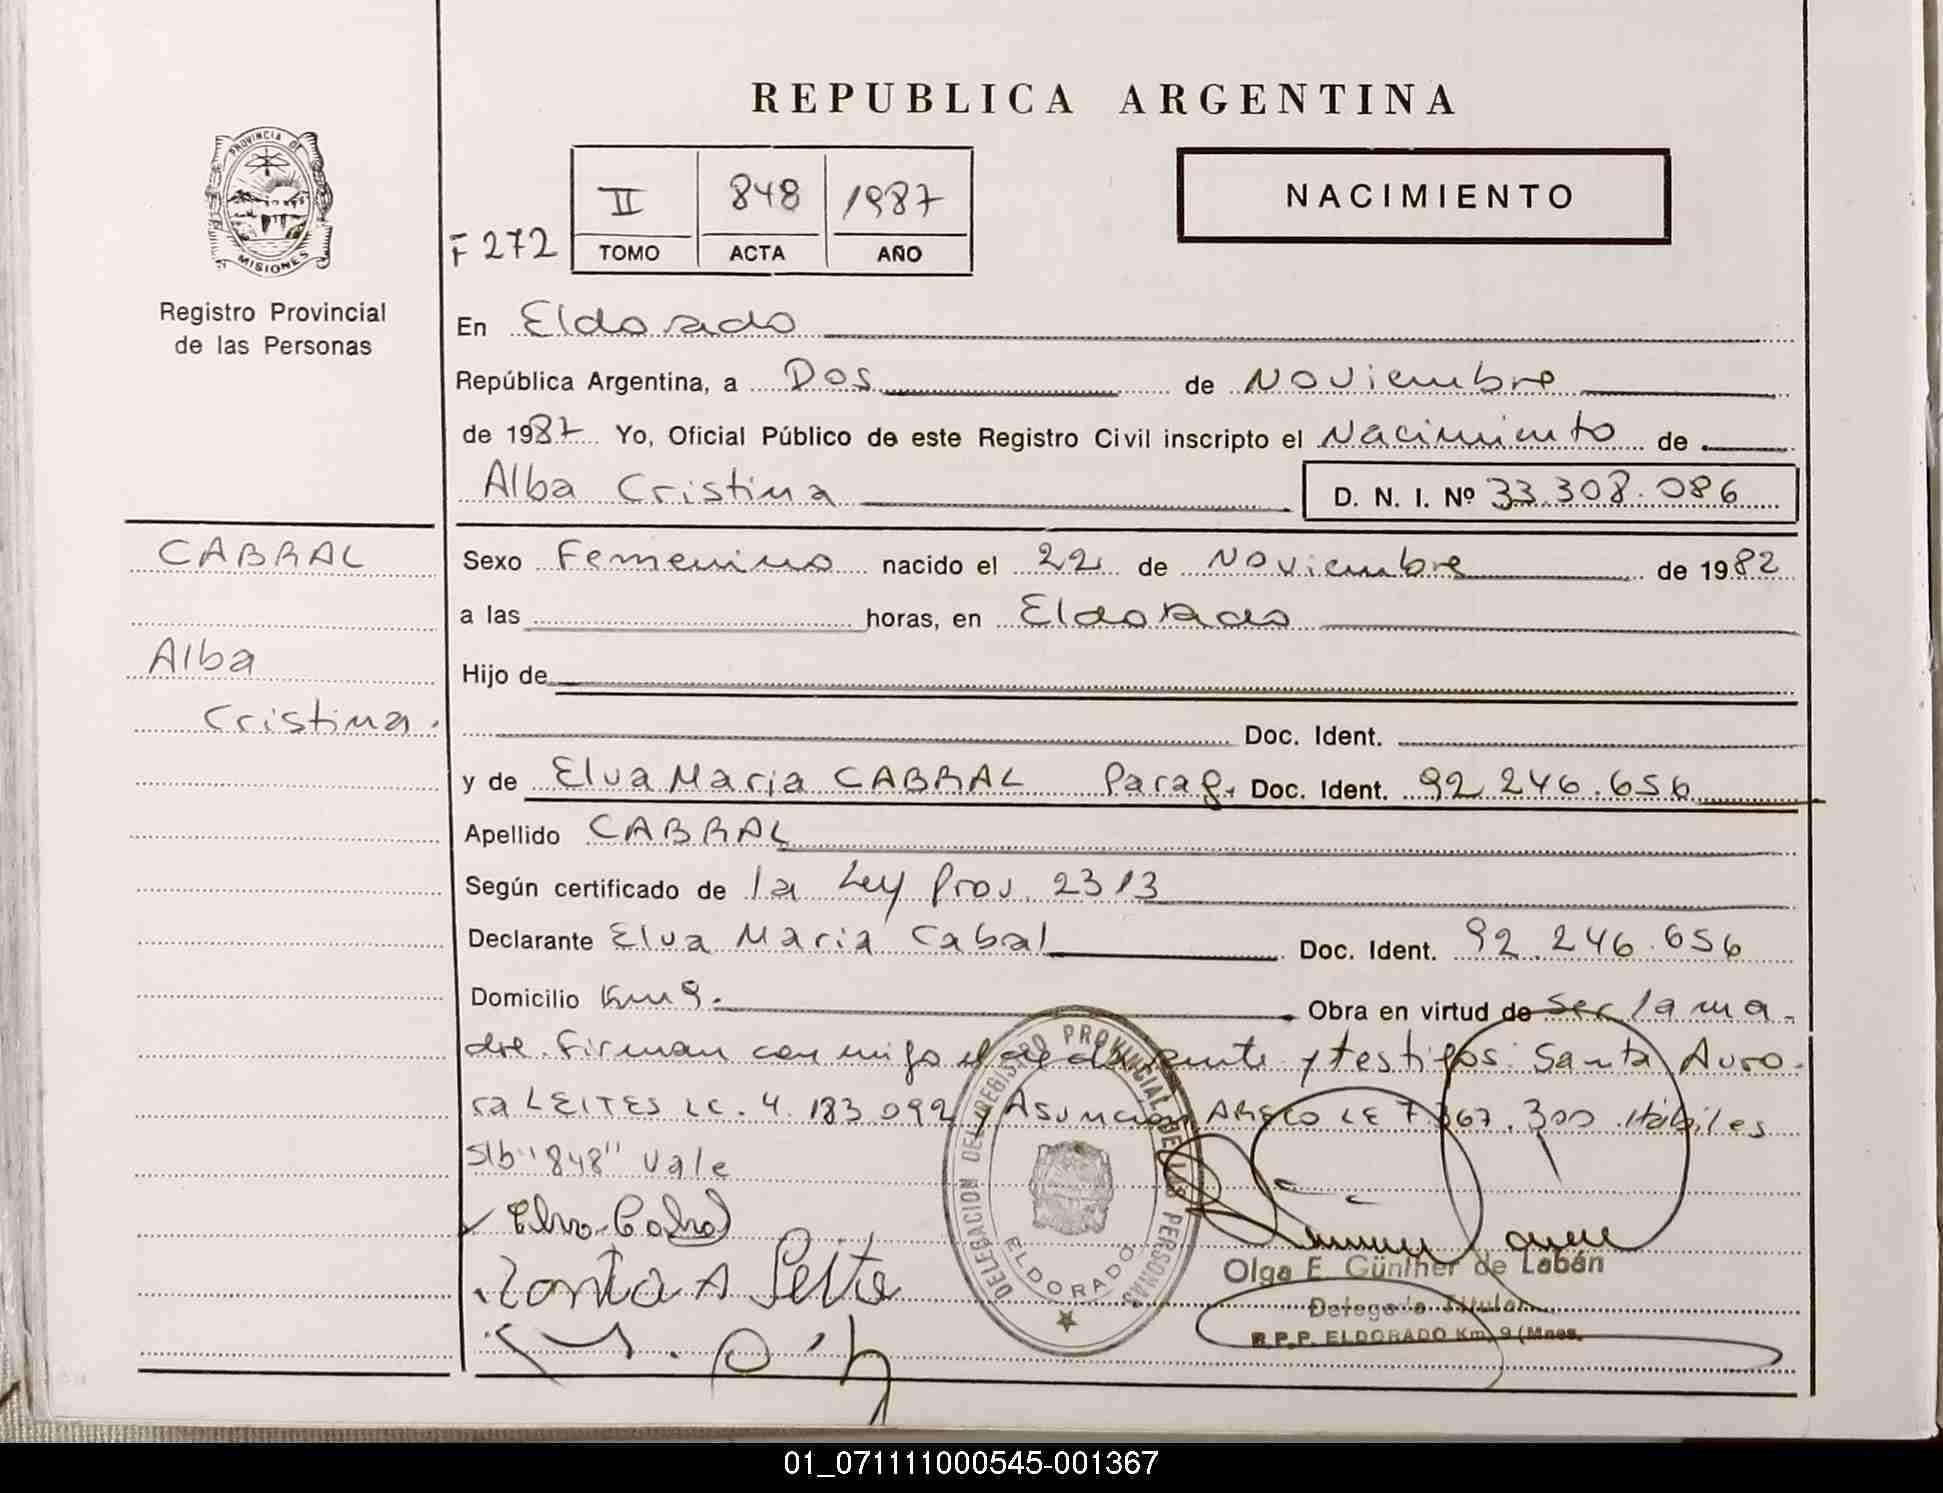 REPUBLICA ARGENTINA
PROVINCIA DE
MISIONES
Registro Provincial
de las Personas
F 272
II 848 1987
TOMO ACTA AÑO
NACIMIENTO
En Eldorado
República Argentina, a Dos de Noviembre
de 1987 Yo, Oficial Público de este Registro Civil inscripto el Nacimiento de
Alba Cristina D. N. I. Nº 33.308.086
CABRAL
Alba
Cristina.
Sexo Femenino nacido el 22 de Noviembre de 1982
a las horas, en Eldorado
Hijo de
Doc. Ident.
y de Elva Maria CABRAL Parag. Doc. Ident. 92.246.656
Apellido CABRAL
Según certificado de la Ley Prov. 2313
Declarante Elva Maria Cabal Doc. Ident. 92.246.656
Domicilio Km 9. Obra en virtud de ser la ma-
dre. Firman con migo el declarante y testigos: Santa Auro-
ra LEITES LC. 4.183.092 y Asuncion ARECO LE 7.367.300 Hábiles
S/b "848" Vale
Elva Cabral
Santa A Leite
DELEGACION DEL REGISTRO PROVINCIAL DE LAS PERSONAS
ELDORADO
Olga E. Günther de Labán
Delegada Titular
R.P.P. ELDORADO Km. 9 (Mnes.
01_071111000545-001367